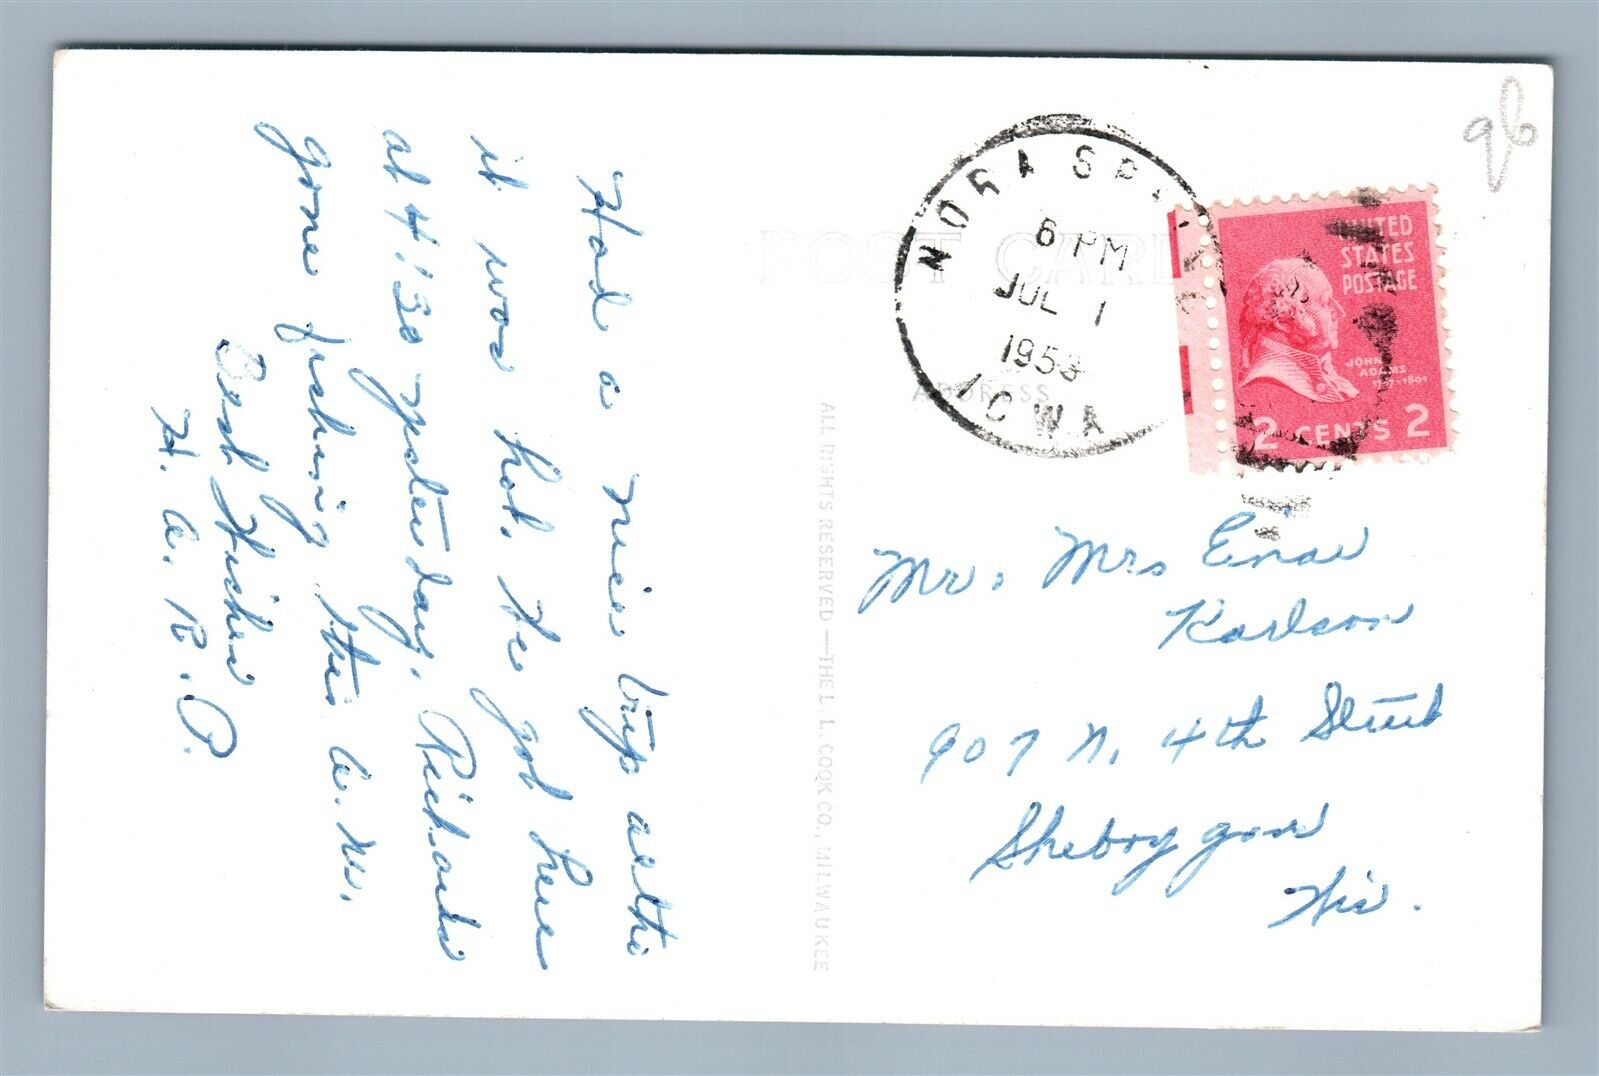 Had a nice trip altho
it was hot. We got here
at 4:30 yesterday. Richards
gone fishing this a.m.
Best Wishes
H. A. R. P.
POST CARD
ADDRESS
ALL RIGHTS RESERVED — THE L. L. COOK CO., MILWAUKEE
NORA SPR
6 PM
JUL 1
1953
IOWA
UNITED
STATES
POSTAGE
JOHN
ADAMS
1797-1801
2 CENTS 2
Mr. Mrs Einar
Karlson
907 N. 4th Street
Sheboygan
Wis.